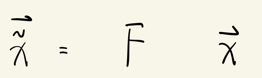 $\vec{\tilde{x}} = \bar{F} \quad \vec{x}$